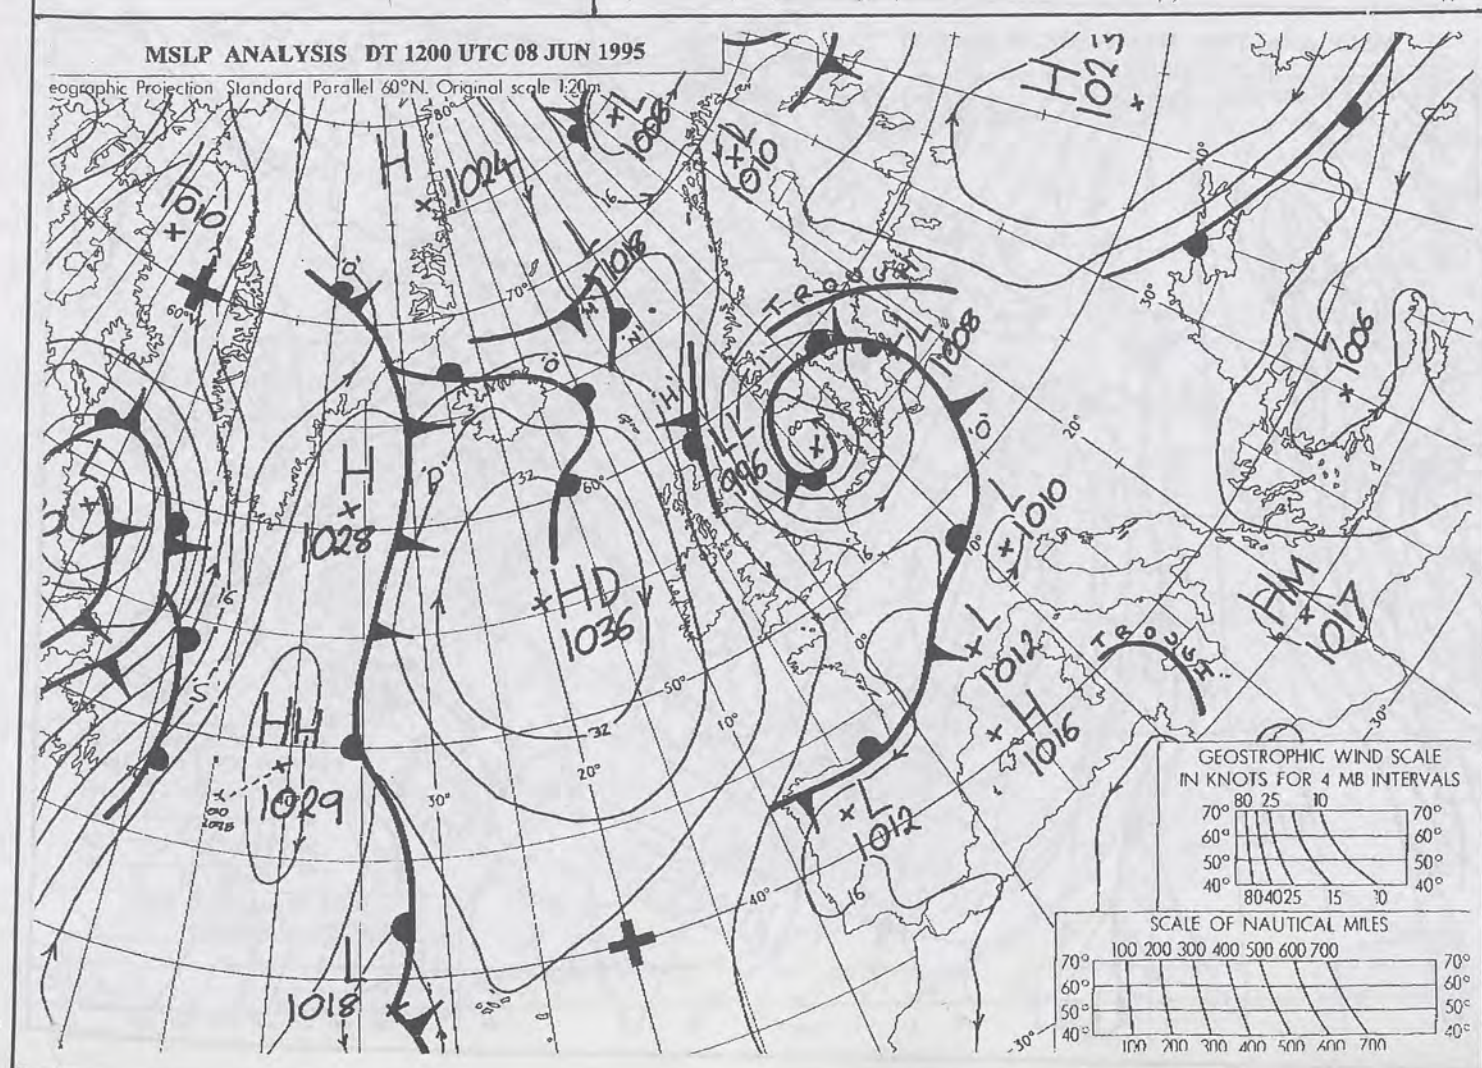 MSLP ANALYSIS DT 1200 UTC 08 JUN 1995
eographic Projection Standard Parallel 60°N. Original scale 1:20m
H
1025
80°
L
1008
H
1024
L
1010
L
1010
16
'Q'
L
1018
70°
TROUGH
40°
30°
60°
'N'
'O'
'H'
L
1008
L
1006
H
1028
'P'
32
60°
LL
996
'O'
20°
L
L
1010
10°
16
16
HD
1036
HM
1017
L
1012
0°
TROUGH
'S'
50°
H
1016
HH
1029
32
10°
20°
30°
30°
L
1012
40°
16
L
1018
30°
GEOSTROPHIC WIND SCALE
IN KNOTS FOR 4 MB INTERVALS
80 25 10
70° 70°
60° 60°
50° 50°
40° 40°
80 40 25 15 10
SCALE OF NAUTICAL MILES
100 200 300 400 500 600 700
70° 70°
60° 60°
50° 50°
40° 40°
100 200 300 400 500 600 700